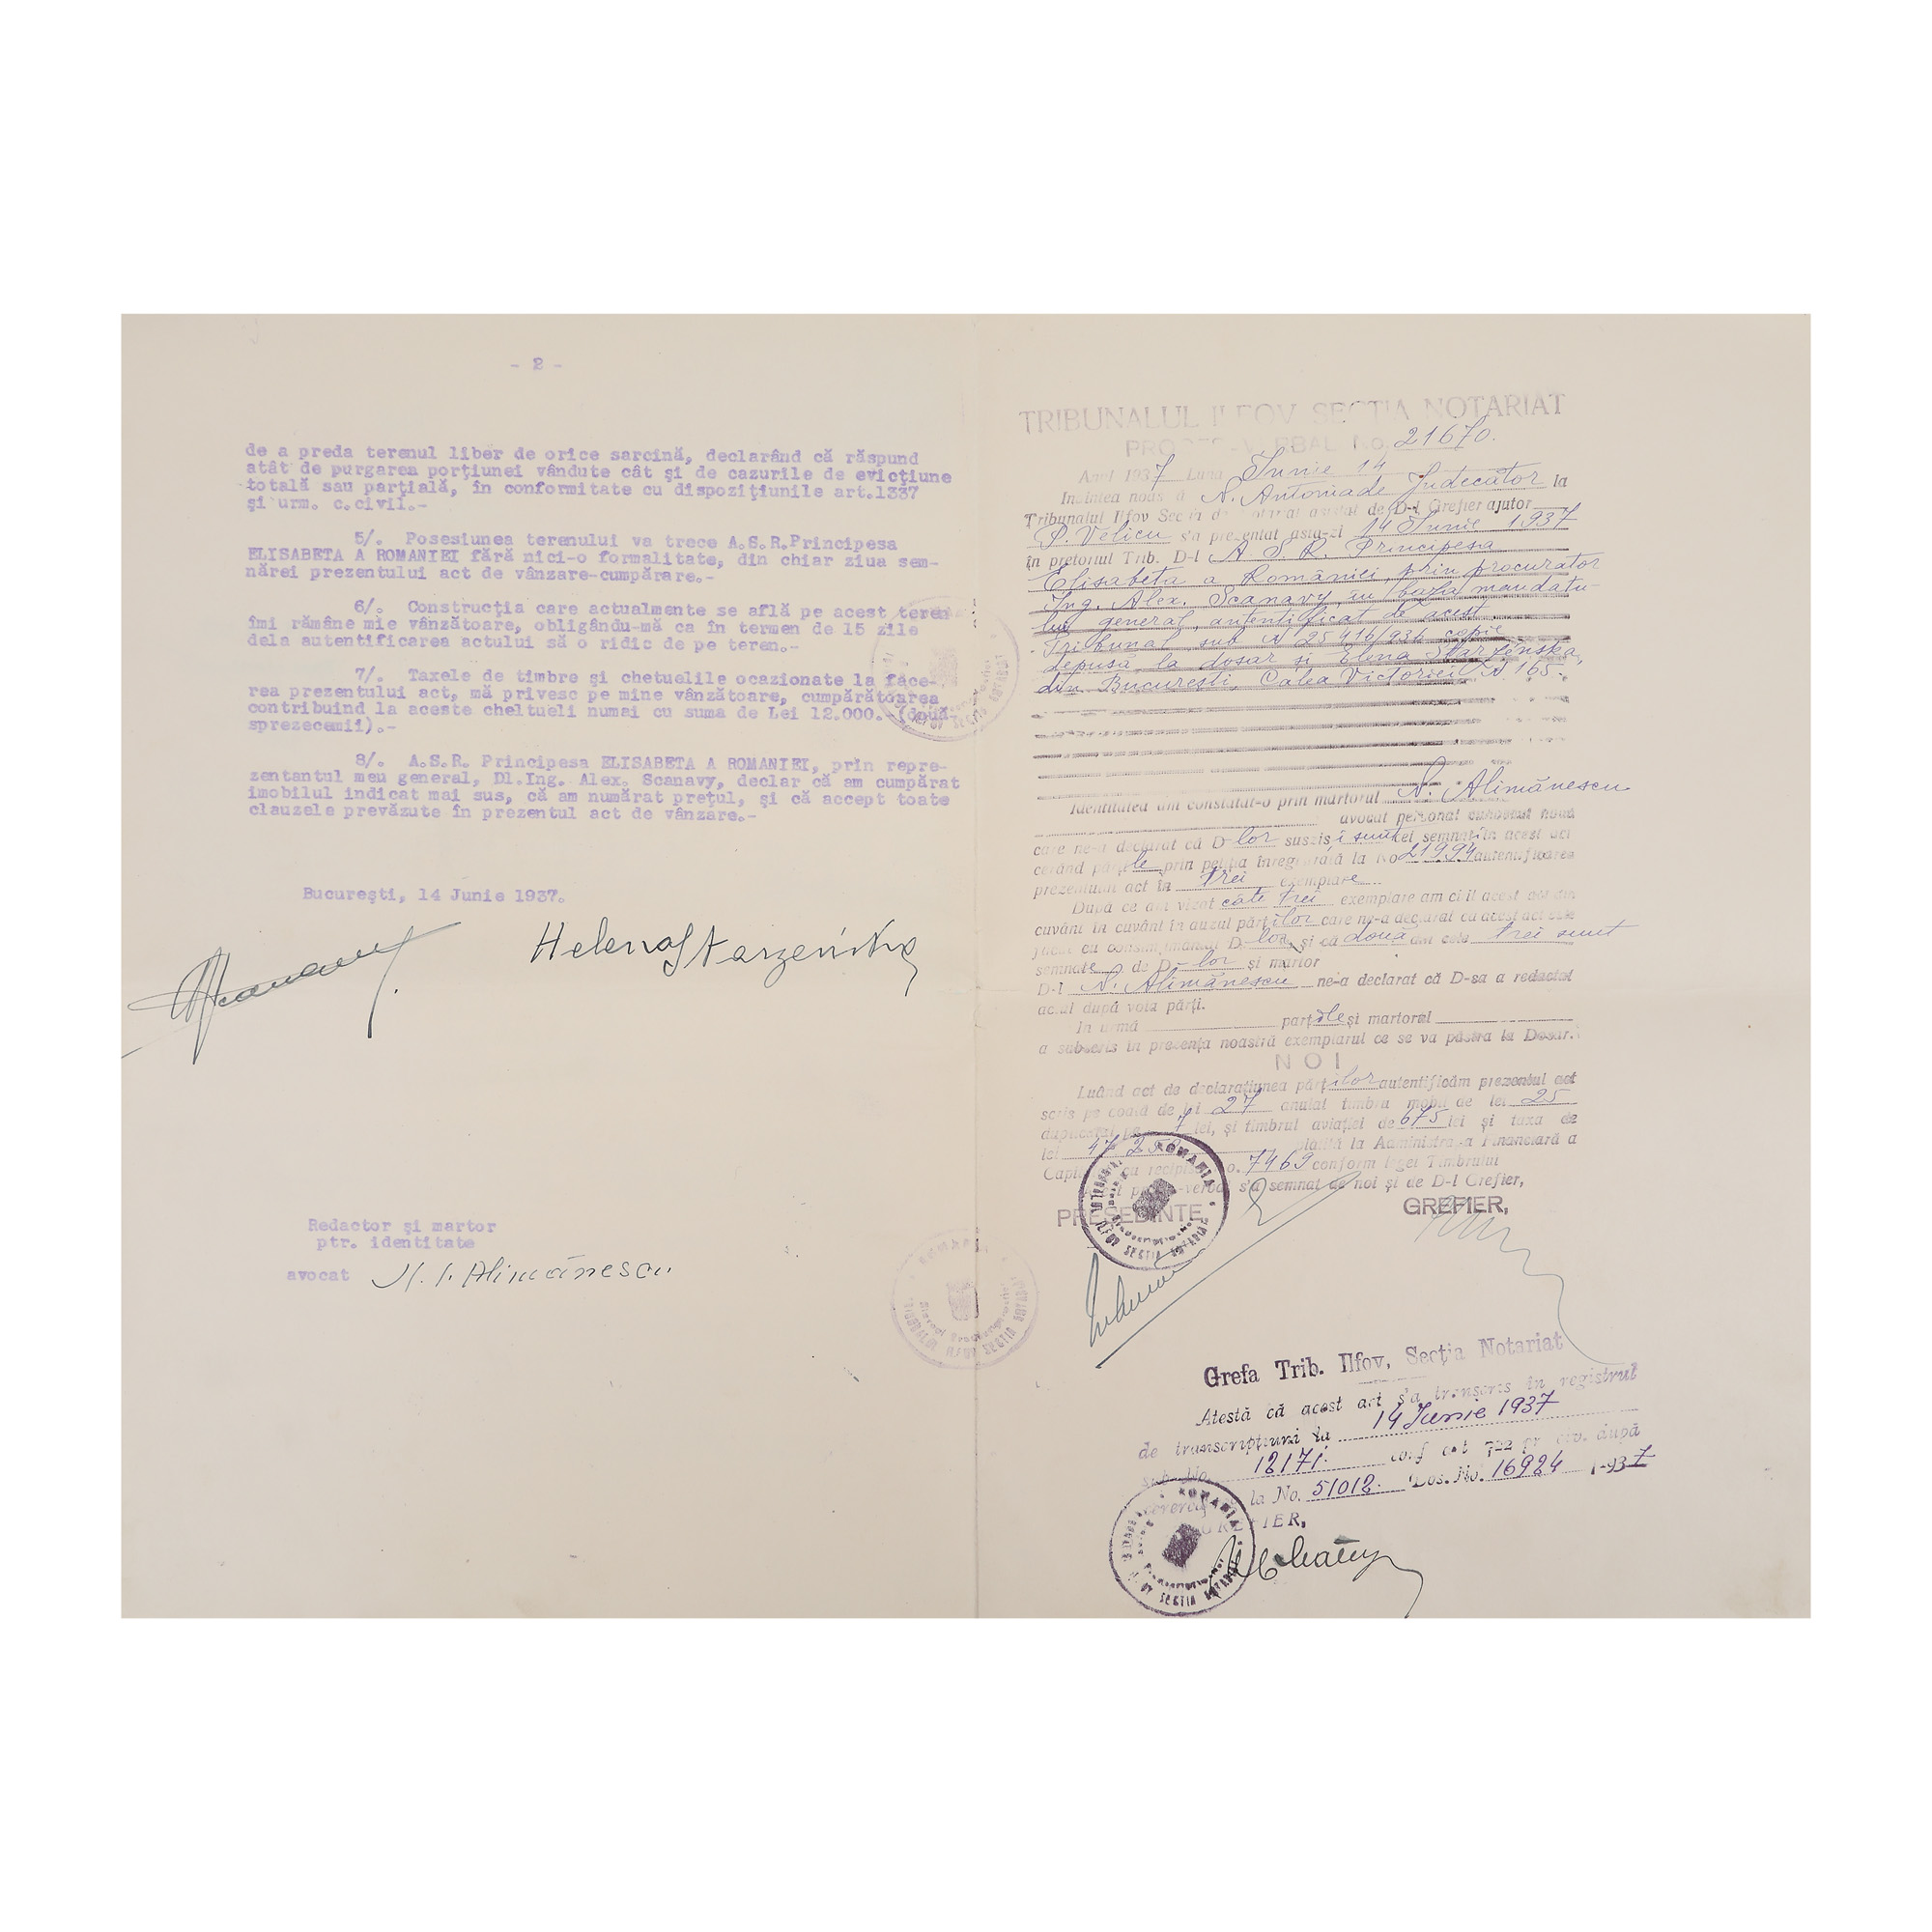 - 2 -
de a preda terenul liber de orice sarcină, declarând că răspund
atât de purgarea porţiunei vândute cât şi de cazurile de evicţiune
totală sau parţială, în conformitate cu dispoziţiunile art.1337
şi urm. c.civil.-
5/. Posesiunea terenului va trece A.S.R.Principesa
ELISABETA A ROMANIEI fără nici-o formalitate, din chiar ziua sem-
nărei prezentului act de vânzare-cumpărare.-
6/. Construcţia care actualmente se află pe acest teren
îmi rămâne mie vânzătoare, obligându-mă ca în termen de 15 zile
dela autentificarea actului să o ridic de pe teren.-
7/. Taxele de timbre şi chetuelile ocazionate la face-
rea prezentului act, mă privesc pe mine vânzătoare, cumpărătoarea
contribuind la aceste cheltueli numai cu suma de Lei 12.000.-(două-
sprezecemii).-
8/. A.S.R. Principesa ELISABETA A ROMANIEI, prin repre-
zentantul meu general, Dl.Ing. Alex. Scanavy, declar că am cumpărat
imobilul indicat mai sus, că am numărat preţul, şi că accept toate
clauzele prevăzute în prezentul act de vânzare.-
Bucureşti, 14 Junie 1937.
Helena Starzeńska
Redactor şi martor
ptr. identitate
avocat N. I. Alimănescu
TRIBUNALUL ILFOV SECŢIA NOTARIAT
PROCES-VERBAL No. 21670.
Anul 1937 Luna Iunie 14
Inaintea noastră N. Antoniade Judecător la
Tribunalul Ilfov Secţia de Notariat asistat de D-l Grefier ajutor
P. Velicu s'a prezentat astă-zi 14 Iunie 1937
în pretoriul Trib. D-l A. S. R. Principesa
Elisabeta a României, prin procurator
Ing. Alex. Scanavy, în baza mandatu-
lui general, autentificat de acest
Tribunal sub N 25416/936 copie
depusă la dosar şi Elena Starzenska,
din Bucureşti, Calea Victoriei N. 165.
Identitatea am constatat-o prin martorul N. Alimănescu
avocat personal cunoscut nouă
care ne-a declarat că D-lor suszişi sunt cei semnaţi în acest act
cerând părţile prin petiţia înregistrată la No 21994 autentificarea
prezentului act în trei exemplare
După ce am vizat câte trei exemplare am citit acest act din
cuvânt în cuvânt în auzul părţilor care ne-a declarat că acest act este
făcut cu consimţimântul D-lor, şi că două din cele trei sunt
semnate de D-lor şi martor
D-l N. Alimănescu ne-a declarat că D-sa a redactat
actul după voia părţi.
In urmă părţile şi martorul
a subscris în prezenţa noastră exemplarul ce se va păstra la Dosar.
NOI
Luând act de declaraţiunea părţilor autentificăm prezentul act
scris pe coală de lei 27 anulat timbru mobil de lei 25
duplicatul pe 7 lei, şi timbrul aviaţiei de 675 lei şi taxa de
lei plătită la Administraţia Financiară a
Capitalei cu recipisa No. 7469 conform legei Timbrului
proces-verbal s'a semnat de noi şi de D-l Grefier,
PREŞEDINTE GREFIER,
Grefa Trib. Ilfov, Secţia Notariat
Atestă că acest act s'a transcris în registrul
de transcripţiuni la 14 Iunie 1937
sub No. 12171. conf art 722 pr civ. după
cererea la No. 51012. Dos. No. 16924 1937
GREFIER,